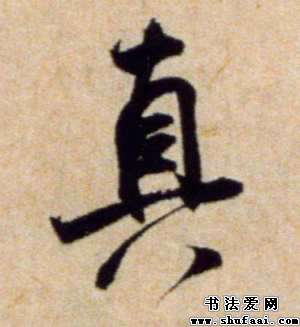 真
书法爱网
www.shufaai.com